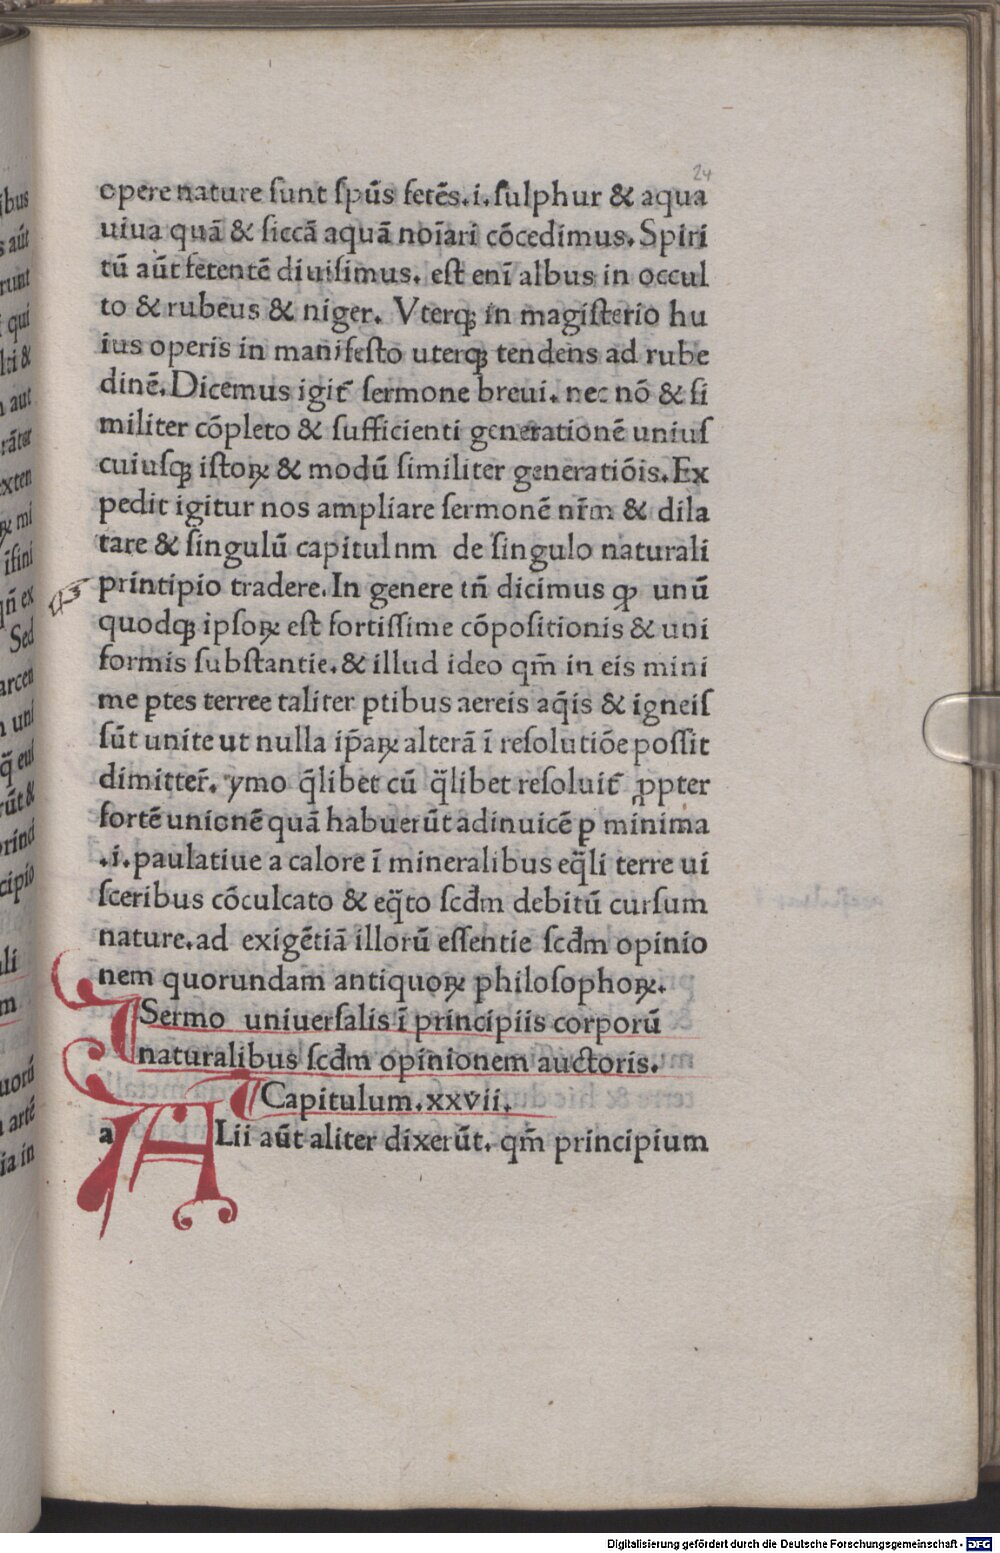 24
opere nature ſunt ſpūs fetēs.i.ſulphur & aqua
uiua quā & ſiccā aquā noīari cōcedimus. Spiri
tū aūt fetentē diuiſimus. eſt enī albus in occul
to & rubeus & niger. Vterqꝫ in magiſterio hu
ius operis in manifeſto uterqꝫ tendens ad rube
dinē. Dicemus igit̄ ſermone breui. nec nō & ſi
militer cōpleto & ſufficienti generationē uniuſ
cuiuſqꝫ iſtoꝝ & modū ſimiliter generatiōis. Ex
pedit igitur nos ampliare ſermonē nr̄m & dila
tare & ſingulū capitulnm de ſingulo naturali
printipio tradere. In genere tn̄ dicimus ꝙ unū
quodqꝫ ipſoꝝ eſt fortiſſime cōpoſitionis & uni
formis ſubſtantie. & illud ideo qm̄ in eis mini
me ꝑtes terree taliter ꝑtibus aereis aq̄is & igneiſ
ſūt unite ut nulla ip̄aꝝ alterā ī reſolutiōe poſſit
dimitter̄. ymo q̄libet cū q̄libet reſoluit̄ ꝓpter
fortē unionē quā habuerūt adinuicē ꝑ minima
.i. paulatiue a calore ī mineralibus eq̄li terre ui
ſceribus cōculcato & eq̄to ſcd̄m debitū curſum
nature. ad exigētiā illorū eſſentie ſcd̄m opinio
nem quorundam antiquoꝝ philoſophoꝝ.
Sermo uniuerſalis ī principiis corporū
naturalibus ſcd̄m opinionem auctoris.
Capitulum. xxvii.
a ALii aūt aliter dixerūt. qm̄ principium
Digitalisierung gefördert durch die Deutsche Forschungsgemeinschaft - DFG